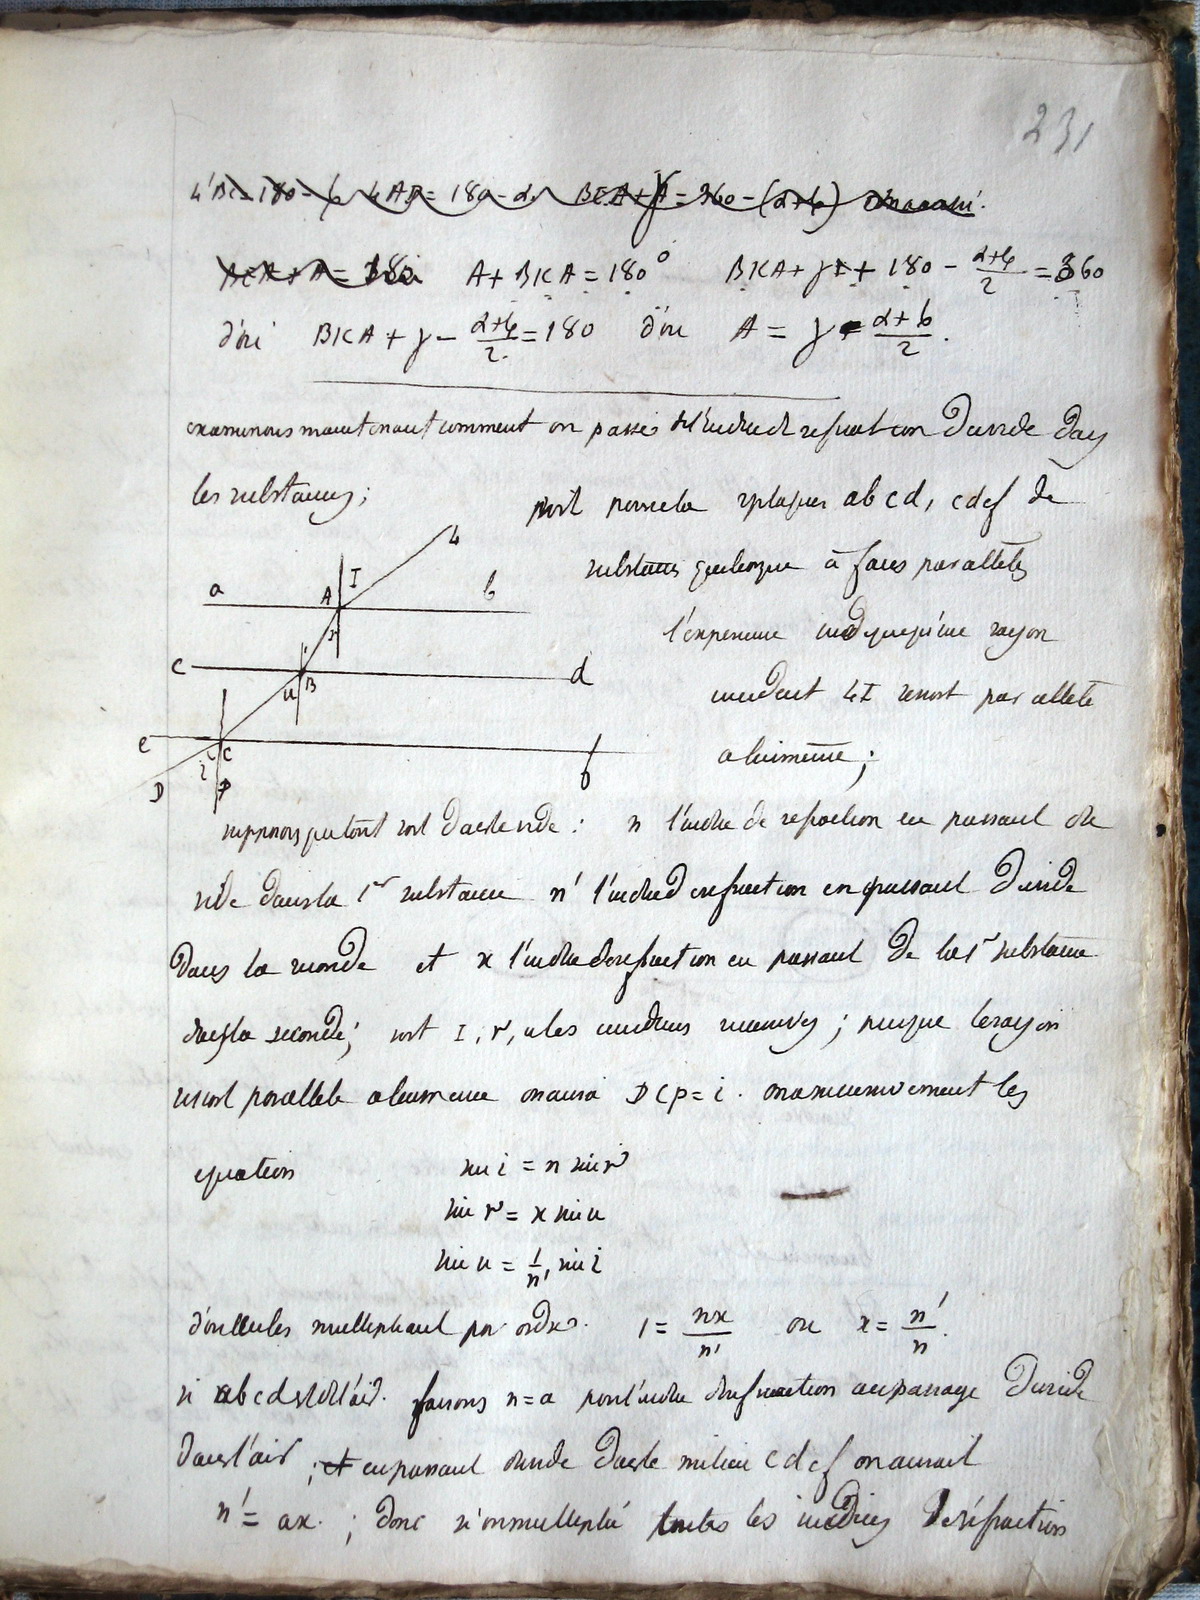 231
A + BKA = 180° BKA + γ + 180 - (α+6)/2 = 360
d'où BKA + γ - (α+6)/2 = 180 d'où A = γ - (α+6)/2.
examinons maintenant comment on passe de l'indice de refraction du vide dans
les substances;
soit pour cela 2 plaques abcd, cdef de
substances quelconque à faces parallèles
l'experience indique qu'un rayon
incident LI ressort parallele
a lui meme;
L
a A I b
r
c u B d
e c C f
D i P
supposons que tout soit dans le vide : n l'indice de refraction en passant du
vide dans la 1r substance n' l'indice de refraction en passant du vide
dans la seconde et x l'indice de refraction en passant de la 1r substance
dans la seconde; soit I, r, u les incidences successives; puisque le rayon
ressort parallele a lui meme on aura DCP = i. on a successivement les
equation sin i = n sin r
sin r = x sin u
sin u = 1/n' sin i
d'ou les multipliant par ordre. 1 = nx/n' ou x = n'/n.
si abcd est de l'air. faisons n = a pour l'indice de refraction au passage du vide
dans l'air ; et en passant du vide dans le milieu cdef on aurait
n' = ax. ; donc si on multiplie toutes les indices de réfraction